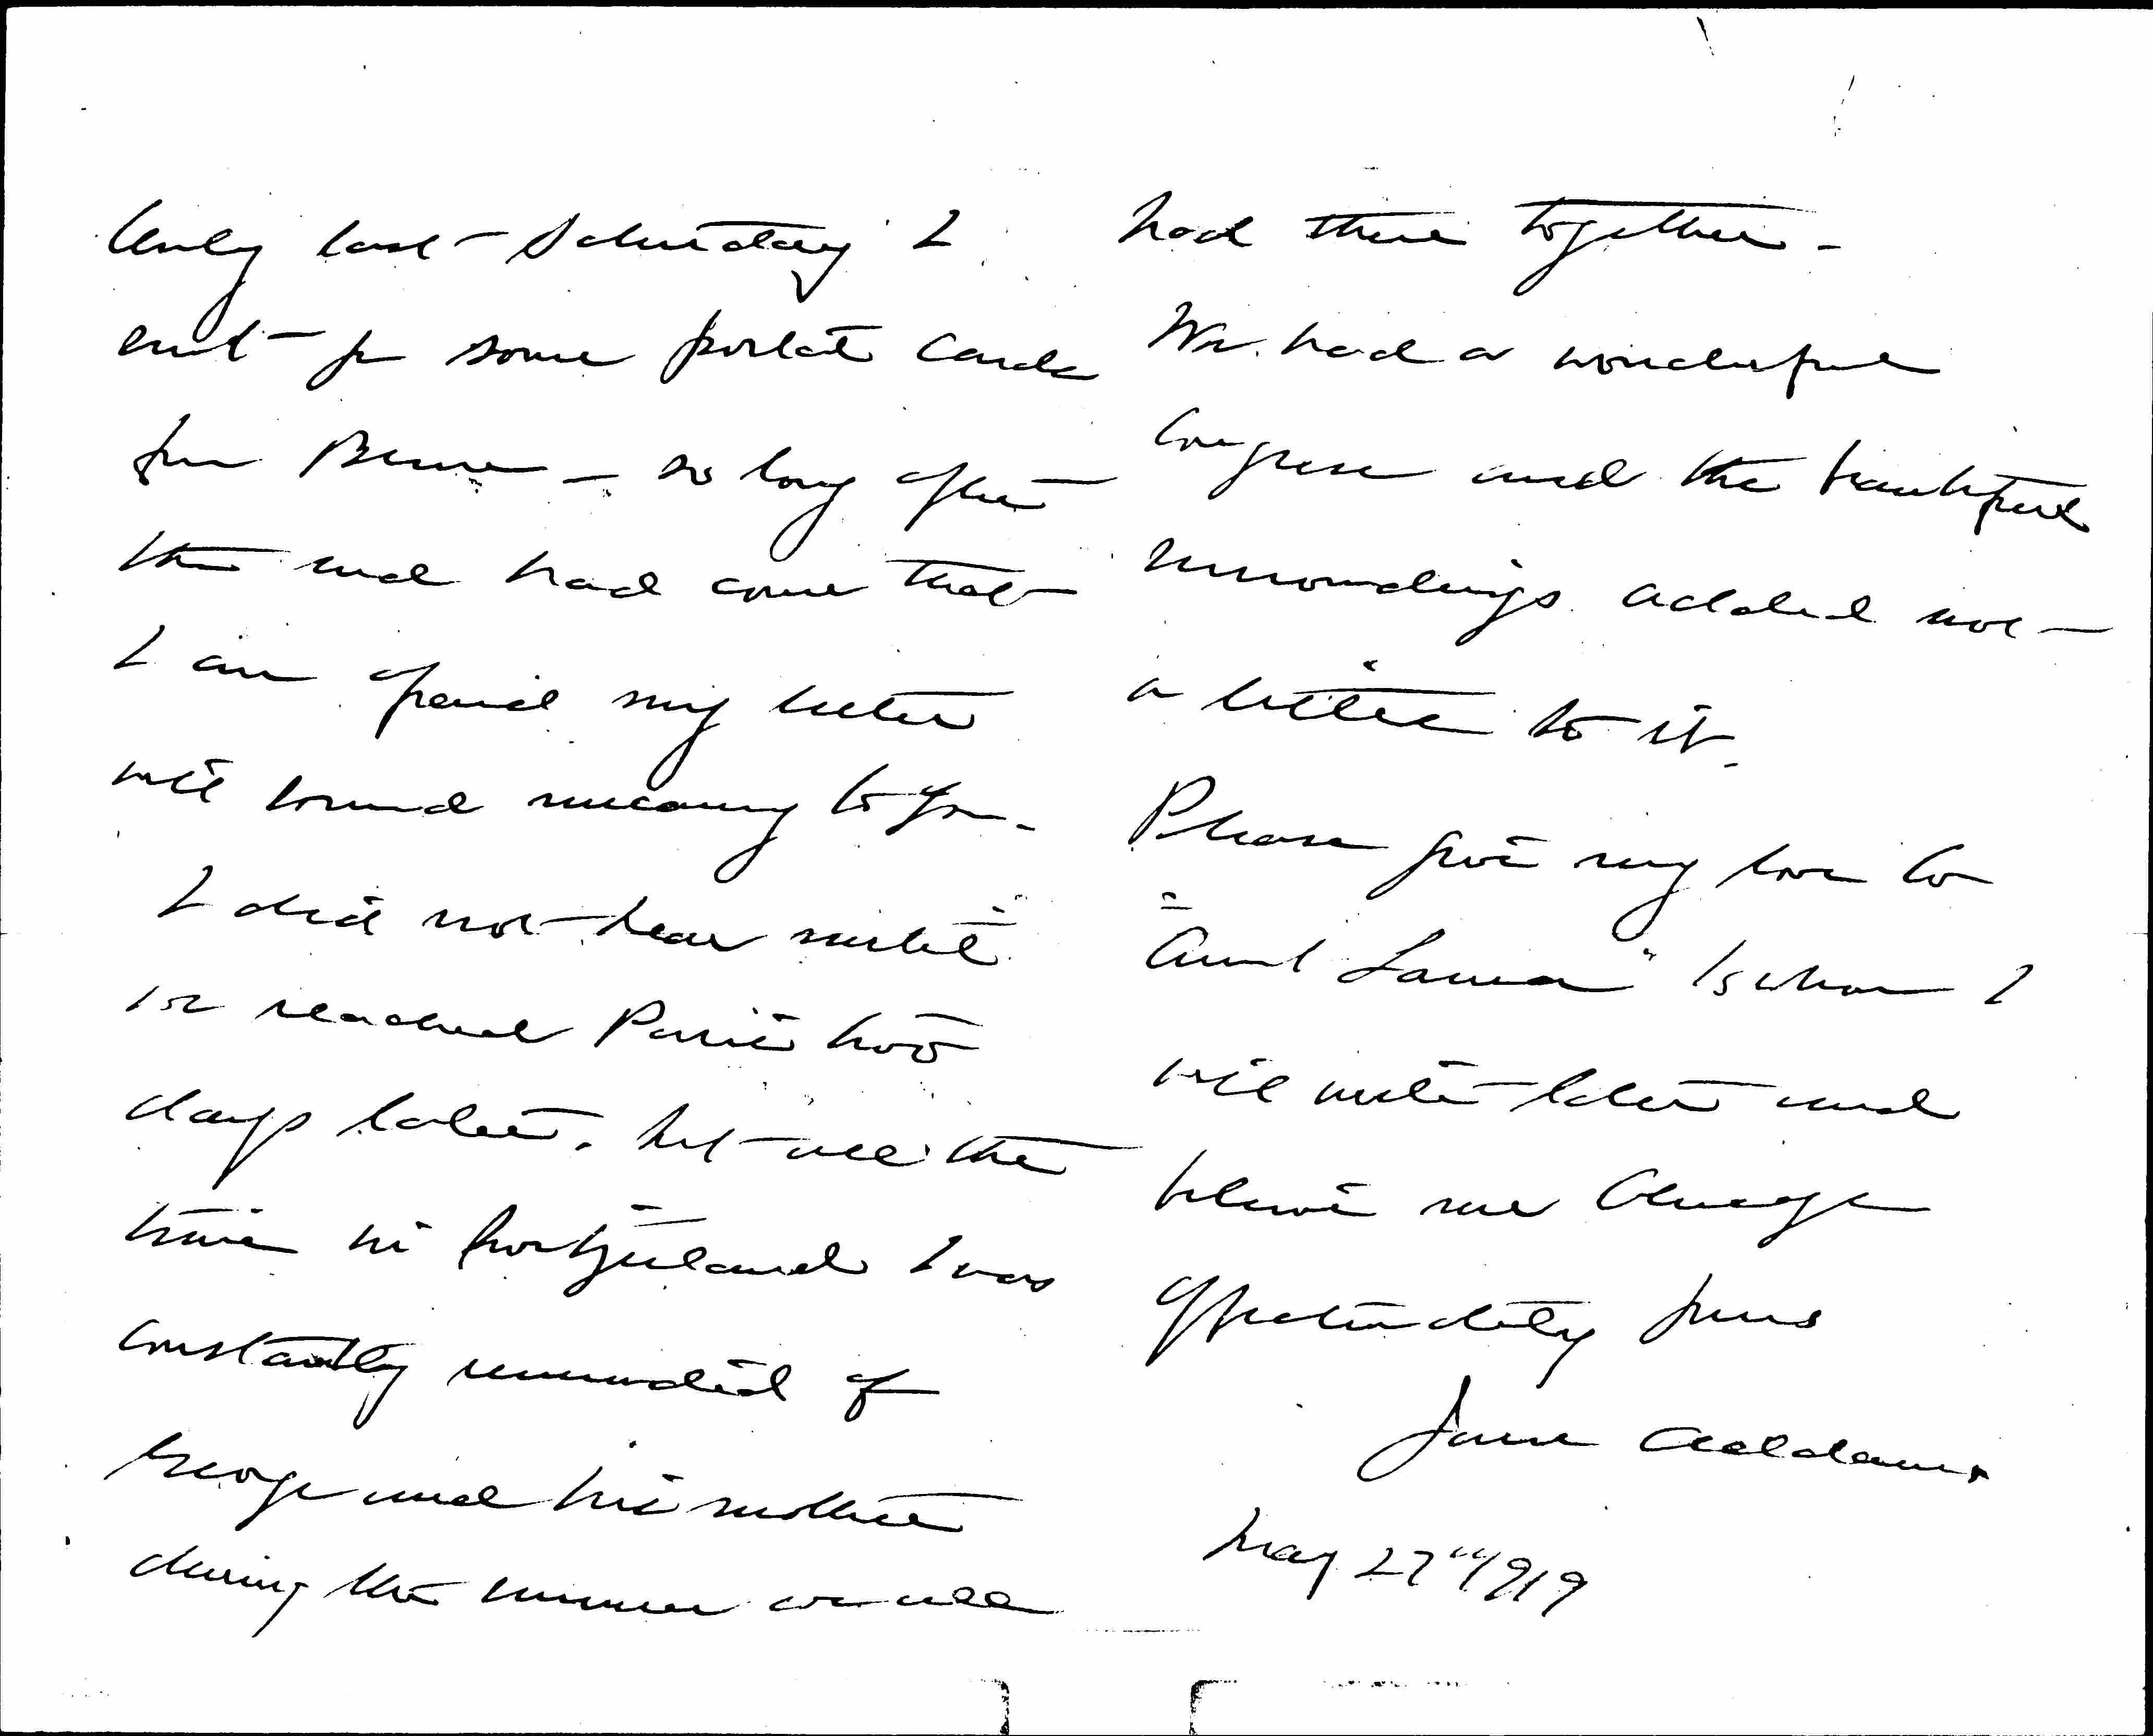 Only last Saturday I
sent for some postal cards
from Berne – so long after
the end had come that
I am afraid my letter
will sound uncanny to you.
I did not hear until
we reached Paris two
days later. but all the
time in Switzerland I was
constantly reminded of
George and his mother
during the summer we all
had there together –
We had a wonderful
Congress and the beautiful
surroundings added not
a little to it.
Please give my love to
"Aunt Laura" to whom I
will write later and
believe me always
affectionately yours
Jane Addams
May 27" 1919